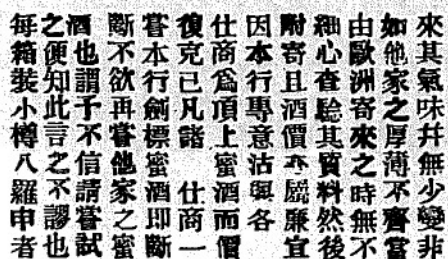 來其氣味幷無少變非
如他家之厚薄不齊當
由歐洲寄來之時無不
細心查驗其質料然後
附寄且酒價亦屬廉宜
因本行專意沽與各
仕商爲頂上蜜酒而價
復克已凡諸 仕商一
嘗本行劍標蜜酒即斷
斷不欲再嘗他家之蜜
酒也謂予不信請嘗試
之便知此言之不謬也
每箱裝小樽八羅申者